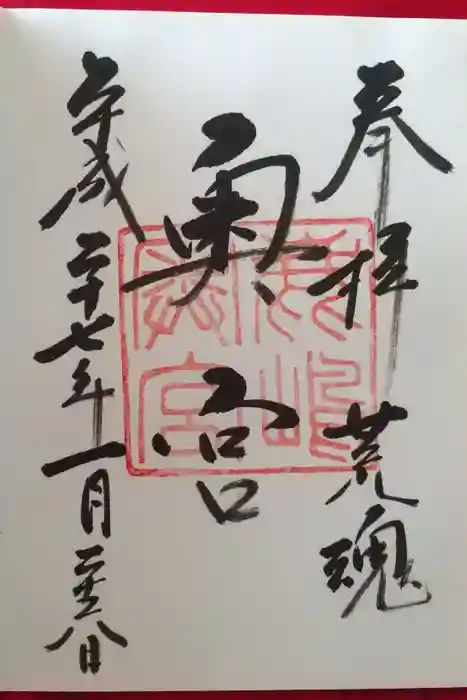 奉拝 荒魂
奥宮
平成二十七年一月二十八日